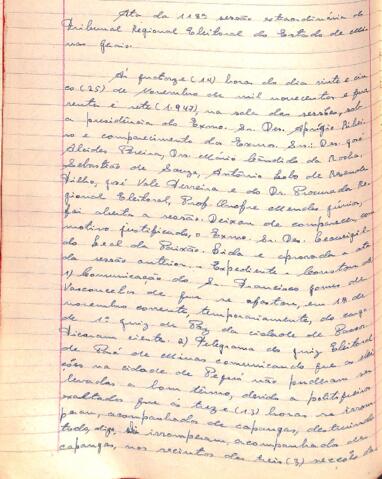 Ata da 118ª sessão extraordinária do
Tribunal Regional Eleitoral do Estado de Mi-
nas Gerais.
Às quatorze (14) horas do dia vinte e cin-
co (25) de novembro de mil novecentos e qua-
renta e sete (1947), na sala das sessões, sob
a presidência do Exmo. Sr. Des. Aprígio Ribei-
ro e comparecimento dos Exmos. Srs.: Des. José
Alcides Pereira, Drs. Mário Cândido da Rocha,
Sebastião de Souza, Antônio Lobo de Resende
Filho, José Vale Ferreira e do Dr. Procurador Re-
gional Eleitoral, Prof. Onofre Mendes Júnior,
foi aberta a sessão. Deixou de comparecer, com
motivo justificado, o Exmo. Sr. Des.
Leal da Paixão. Lida e aprovada a ata
da sessão anterior. Expediente: Constou de
1) Comunicação do Sr. Francisco Gomes de
Vasconcelos de que se afastou, em 18 de
novembro corrente, temporariamente, do cargo
de 1º Juiz de Paz da cidade de
Ficaram ciente. 2) Telegrama do Juiz Eleitoral
de Pará de Minas comunicando que as elei-
ções na cidade de Pequi não puderam ser
levadas a bom têrmo, devido a politiqueiros
exaltados que às treze (13) horas na
peram, acompanhados de capangas, destruindo
tudo, digo, irromperam, acompanhados de
capangas, nos recintos das três (3) secções da